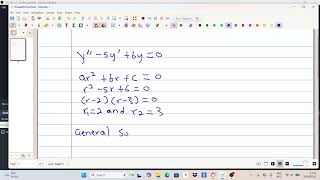 y'' - 5y' + 6y = 0
ar² + br + c = 0
r² - 5r + 6 = 0
(r-2)(r-3) = 0
r₁ = 2 and r₂ = 3
General So